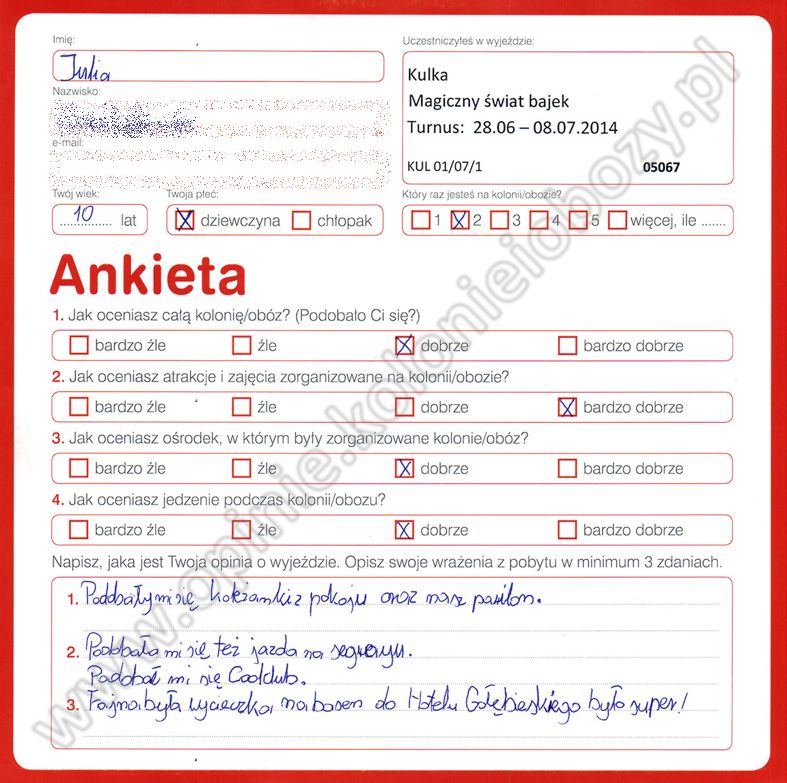 Imię:
Julia
Nazwisko:
e-mail:
Uczestniczyłeś w wyjeździe:
Kulka
Magiczny świat bajek
Turnus: 28.06 – 08.07.2014
KUL 01/07/1 05067
Twój wiek:
10 lat
Twoja płeć:
dziewczyna chłopak
Który raz jesteś na kolonii/obozie?
1 2 3 4 5 więcej, ile .......
Ankieta
1. Jak oceniasz całą kolonię/obóz? (Podobało Ci się?)
bardzo źle źle dobrze bardzo dobrze
2. Jak oceniasz atrakcje i zajęcia zorganizowane na kolonii/obozie?
bardzo źle źle dobrze bardzo dobrze
3. Jak oceniasz ośrodek, w którym były zorganizowane kolonie/obóz?
bardzo źle źle dobrze bardzo dobrze
4. Jak oceniasz jedzenie podczas kolonii/obozu?
bardzo źle źle dobrze bardzo dobrze
Napisz, jaka jest Twoja opinia o wyjeździe. Opisz swoje wrażenia z pobytu w minimum 3 zdaniach.
1. Podobały mi się koleżanki z pokoju oraz nasz pawilon.
2. Podobała mi się też jazda na segwayu.
Podobał mi się Coolclub.
3. Fajna była wycieczka na basen do Hotelu Gołębieskiego było super!
www.opinie.kolonieiobozy.pl